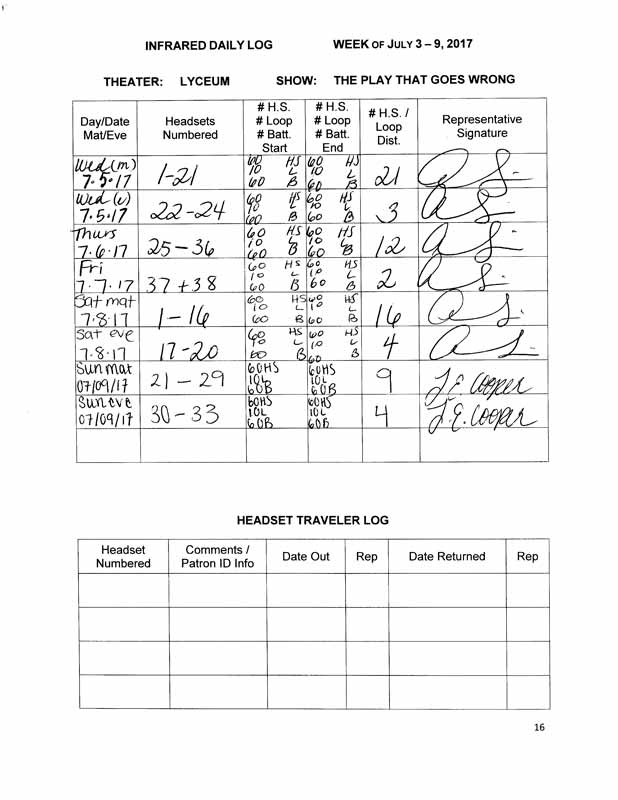 INFRARED DAILY LOG WEEK OF JULY 3 – 9, 2017
THEATER: LYCEUM SHOW: THE PLAY THAT GOES WRONG
Day/Date Mat/Eve Headsets Numbered # H.S. # Loop # Batt. Start # H.S. # Loop # Batt. End # H.S. / Loop Dist. Representative Signature
Wed (m) 7.5.17 1-21 60 HS 10 L 60 B 60 HS 10 L 60 B 21
Wed (e) 7.5.17 22-24 60 HS 10 L 60 B 60 HS 10 L 60 B 3
Thurs 7.6.17 25-36 60 HS 10 L 60 B 60 HS 10 L 60 B 12
Fri 7.7.17 37+38 60 HS 10 L 60 B 60 HS 10 L 60 B 2
Sat mat 7.8.17 1-16 60 HS 10 L 60 B 60 HS 10 L 60 B 16
Sat eve 7.8.17 17-20 60 HS 10 L 60 B 60 HS 10 L 60 B 4
Sun mat 07/09/17 21-29 60HS 10L 60B 60HS 10L 60B 9 J.E. Cooper
Sun eve 07/09/17 30-33 60HS 10L 60B 60HS 10L 60B 4 J.E. Cooper
HEADSET TRAVELER LOG
Headset Numbered Comments / Patron ID Info Date Out Rep Date Returned Rep
16